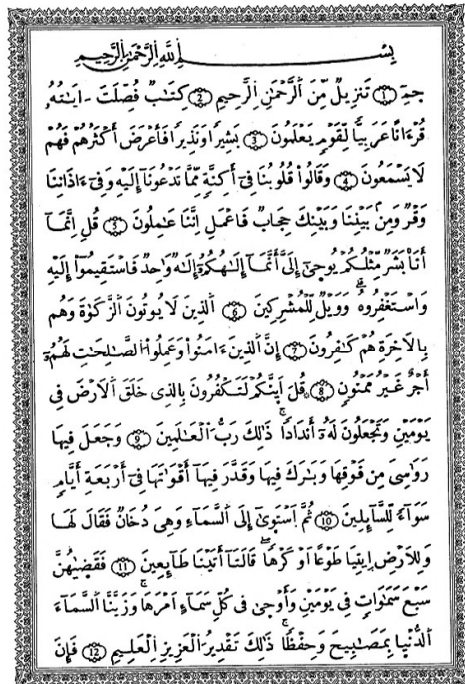 بِسْمِ اللَّهِ الرَّحْمَٰنِ الرَّحِيمِ
حمٓ ۝١ تَنزِيلٌ مِّنَ ٱلرَّحْمَٰنِ ٱلرَّحِيمِ ۝٢ كِتَٰبٌ فُصِّلَتْ ءَايَٰتُهُۥ
قُرْءَانًا عَرَبِيًّا لِّقَوْمٍ يَعْلَمُونَ ۝٣ بَشِيرًا وَنَذِيرًا فَأَعْرَضَ أَكْثَرُهُمْ فَهُمْ
لَا يَسْمَعُونَ ۝٤ وَقَالُوا۟ قُلُوبُنَا فِىٓ أَكِنَّةٍ مِّمَّا تَدْعُونَآ إِلَيْهِ وَفِىٓ ءَاذَانِنَا
وَقْرٌ وَمِنۢ بَيْنِنَا وَبَيْنِكَ حِجَابٌ فَٱعْمَلْ إِنَّنَا عَٰمِلُونَ ۝٥ قُلْ إِنَّمَآ
أَنَا۠ بَشَرٌ مِّثْلُكُمْ يُوحَىٰٓ إِلَىَّ أَنَّمَآ إِلَٰهُكُمْ إِلَٰهٌ وَٰحِدٌ فَٱسْتَقِيمُوٓا۟ إِلَيْهِ
وَٱسْتَغْفِرُوهُ وَوَيْلٌ لِّلْمُشْرِكِينَ ۝٦ ٱلَّذِينَ لَا يُوتُونَ ٱلزَّكَوٰةَ وَهُم
بِٱلْأَخِرَةِ هُمْ كَٰفِرُونَ ۝٧ إِنَّ ٱلَّذِينَ ءَامَنُوا۟ وَعَمِلُوا۟ ٱلصَّٰلِحَٰتِ لَهُمُۥٓ
أَجْرٌ غَيْرُ مَمْنُونٍ ۝٨ قُلَ اَينَّكُمْ لَتَكْفُرُونَ بِٱلَّذِى خَلَقَ ٱلْأَرْضَ فِى
يَوْمَيْنِ وَتَجْعَلُونَ لَهُۥٓ أَندَادًا ذَٰلِكَ رَبُّ ٱلْعَٰلَمِينَ ۝٩ وَجَعَلَ فِيهَا
رَوَٰسِىَ مِن فَوْقِهَا وَبَٰرَكَ فِيهَا وَقَدَّرَ فِيهَآ أَقْوَٰتَهَا فِىٓ أَرْبَعَةِ أَيَّامٍ
سَوَآءً لِّلسَّآئِلِينَ ۝١٠ ثُمَّ ٱسْتَوَىٰٓ إِلَى ٱلسَّمَآءِ وَهِىَ دُخَانٌ فَقَالَ لَهَا
وَلِلْأَرْضِ ٱئْتِيَا طَوْعًا أَوْ كَرْهًا قَالَتَآ أَتَيْنَا طَآئِعِينَ ۝١١ فَقَضَىٰهُنَّ
سَبْعَ سَمَٰوَاتٍ فِى يَوْمَيْنِ وَأَوْحَىٰ فِى كُلِّ سَمَآءٍ أَمْرَهَا وَزَيَّنَّا ٱلسَّمَآءَ
ٱلدُّنْيَا بِمَصَٰبِيحَ وَحِفْظًا ذَٰلِكَ تَقْدِيرُ ٱلْعَزِيزِ ٱلْعَلِيمِ ۝١٢ فَإِنَ